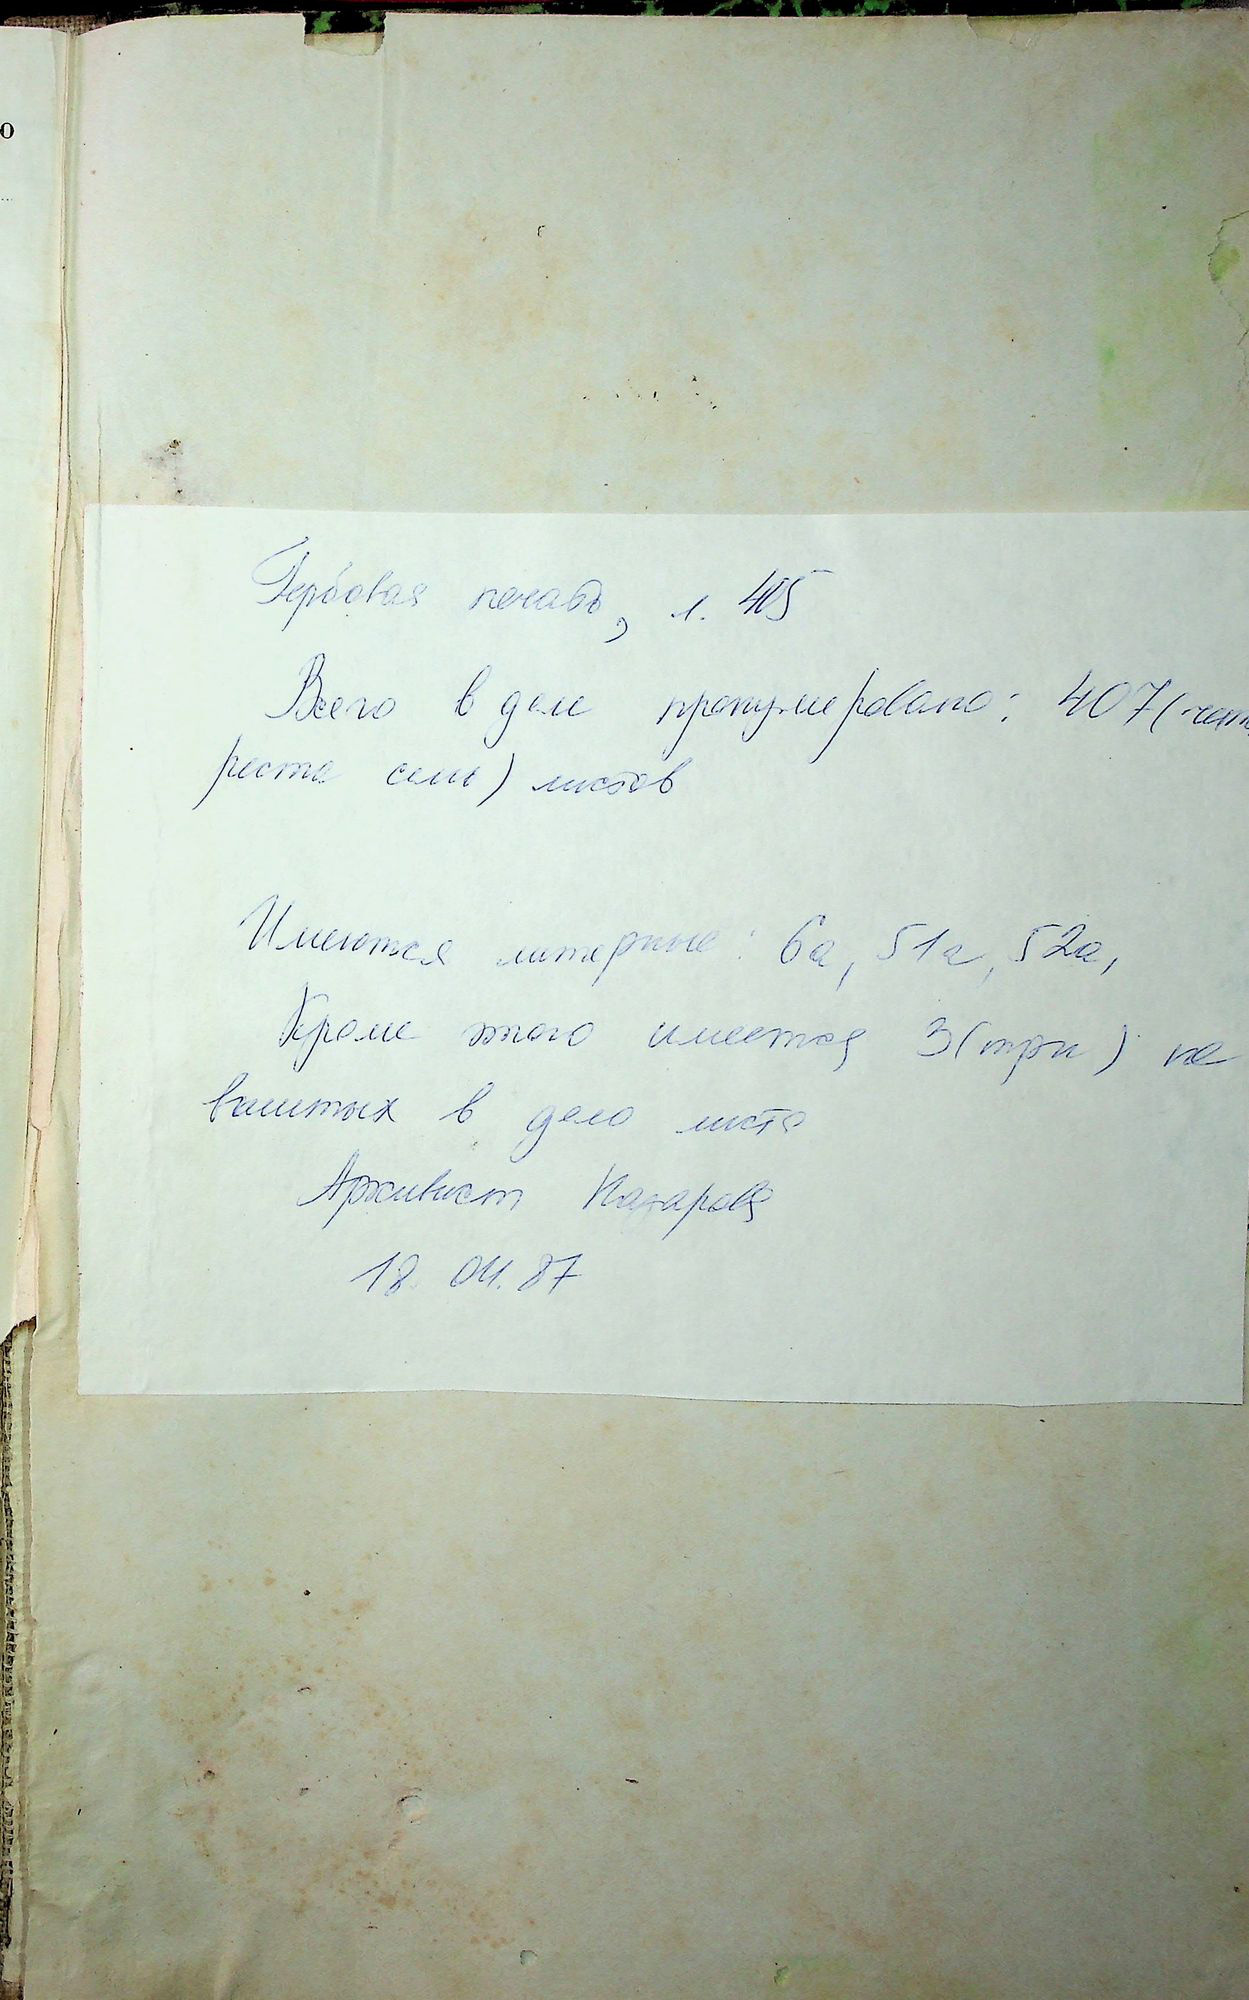 Гербовая печать, л. 405
Всего в деле пронумеровано: 407 (четы
реста семь) листов
Имеются литерные: 6а, 51а, 52а,
Кроме этого имеется 3 (три) не
вшитых в дело листа
Архивист Назарова
18. 04. 87